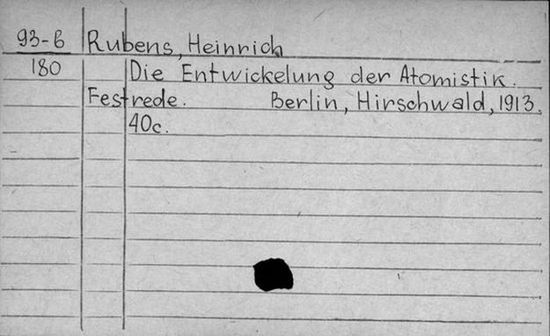 93-6 Rubens, Heinrich
180 Die Entwickelung der Atomistik.
Festrede. Berlin, Hirschwald, 1913.
40c.